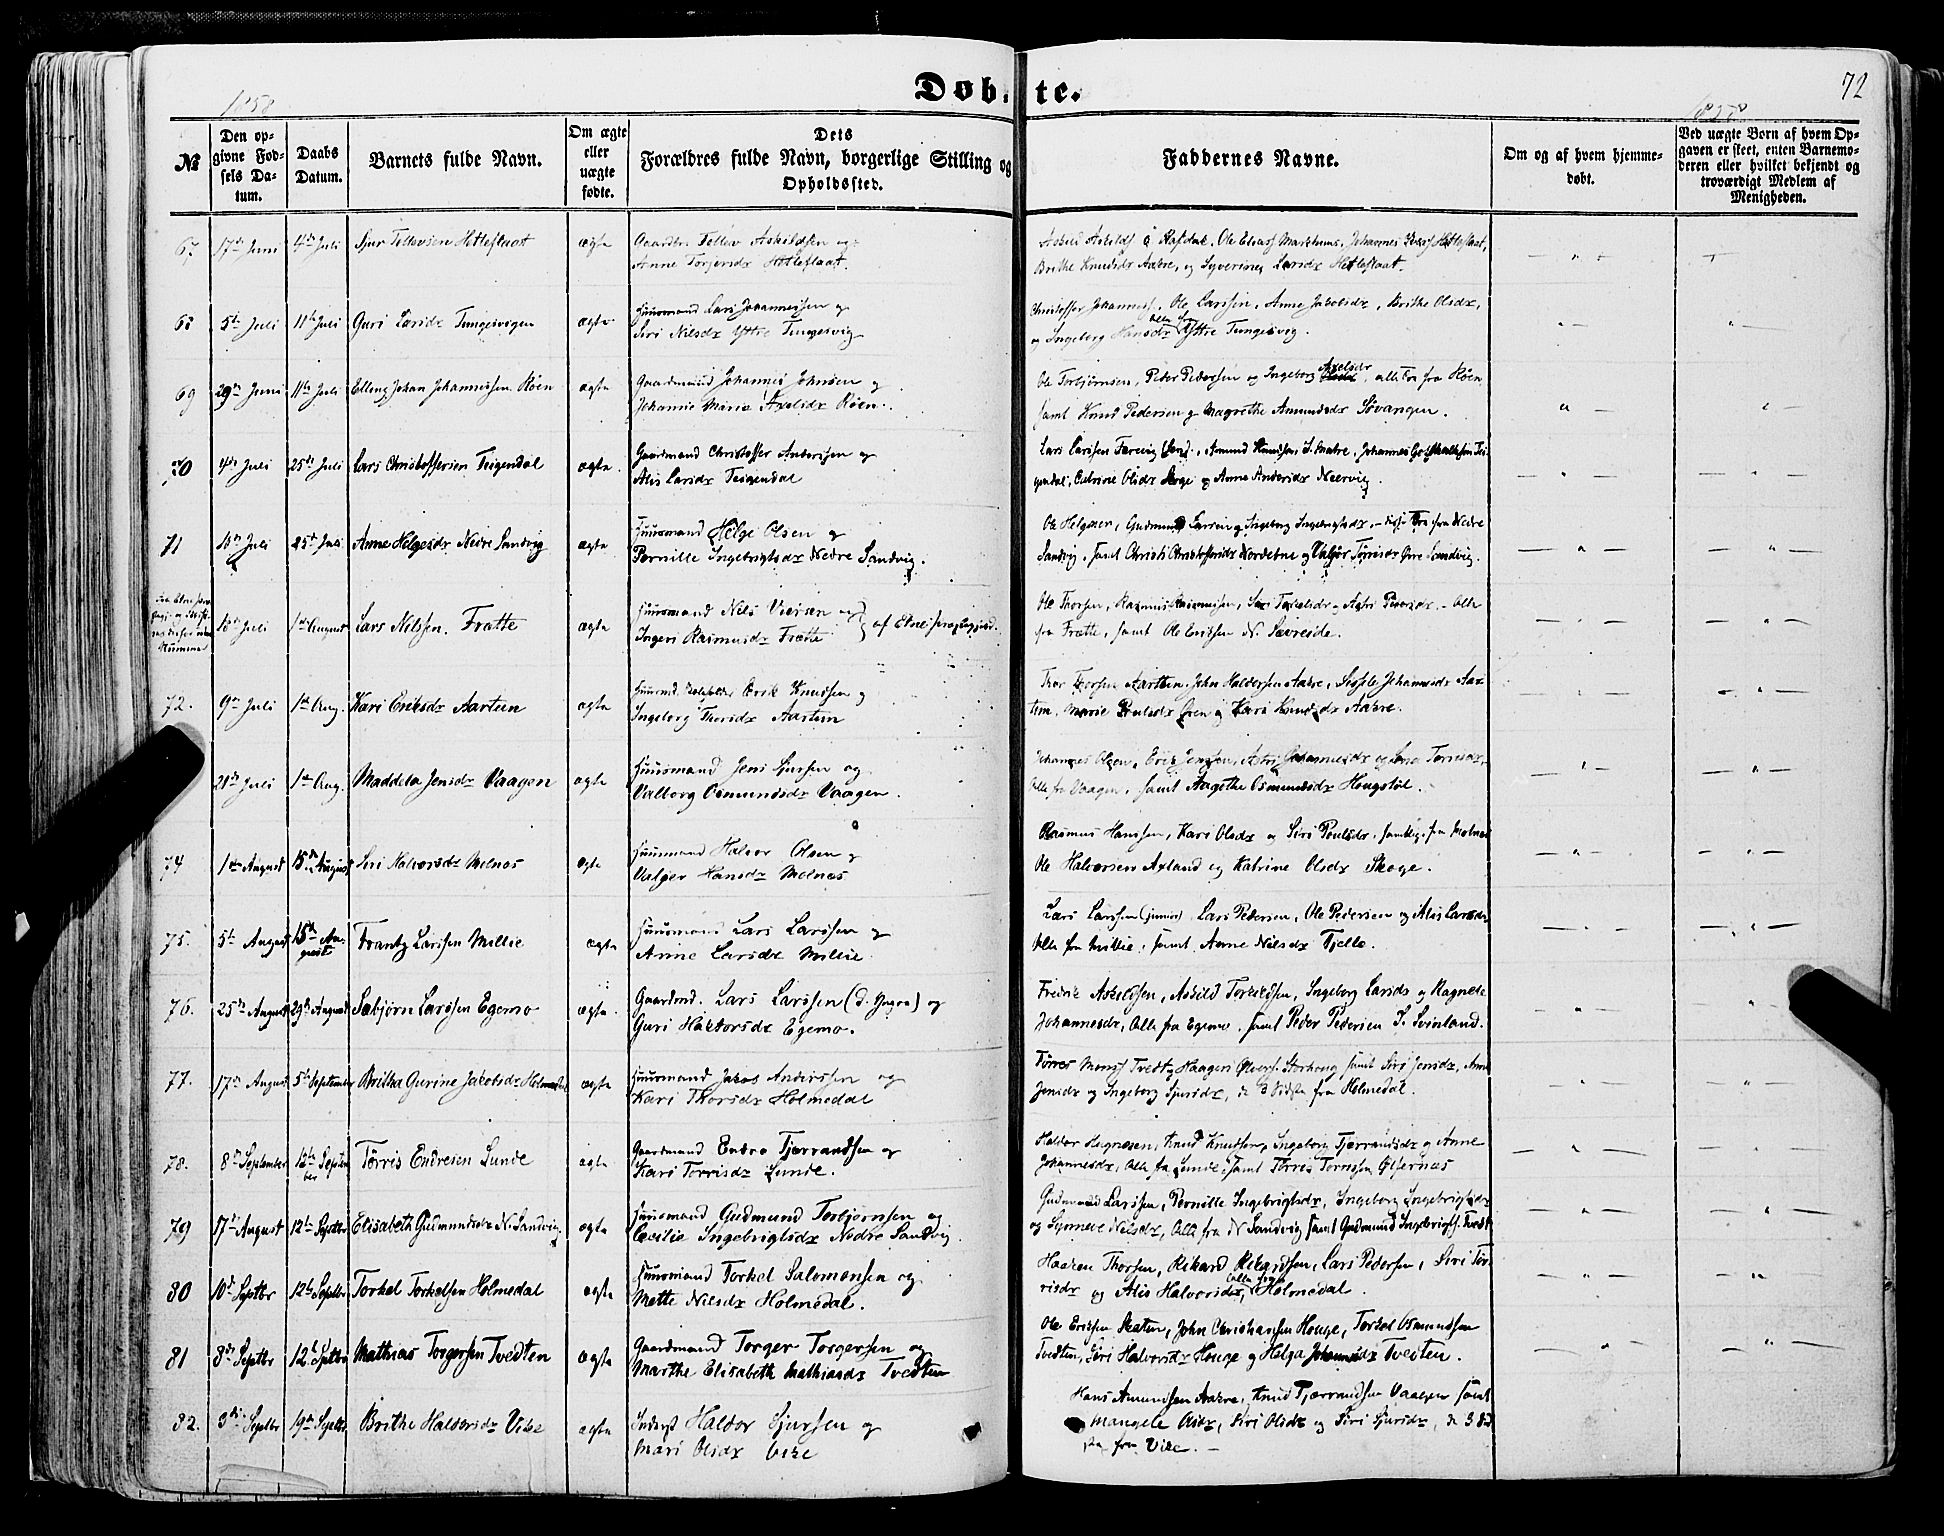 Døbte.
72
1858
1858
№
Den opgivne Fødsels Datum.
Daabs Datum.
Barnets fulde Navn.
Om ægte eller uægte fødte.
Dets Forældres fulde Navn, borgerlige Stilling og Opholdssted.
Faddernes Navne.
Om og af hvem hjemmedøbt.
Ved uægte Børn af hvem Opgaven er skeet, enten Barnemoderen eller hvilket bekjendt og troværdigt Medlem af Menigheden.
67 17de Juni 4de Juli Sjur Tellevsen Hetleflaat ægte Gaardbr. Tellev Askildsen og
Anne Torjersdr Hetleflaat.
Askild Askilds å Rafdal, Ole Eliass Markhuus, Johannes Hetleflaat,
Brithe Knudsdr Aakre, og Syverine Larsdr Hetleflaat.
68 5te Juli 11te Juli Guri Larsdr Tungesvigen ægte Huusmand Lars Johannessen og
Siri Nilsdr Yttre Tungesvig
Christoffer Johanness, Ole Larssen, Anne Jakobsdr, Brithe Olsdr,
og Ingeborg Hansdr alle fra Yttre Tungesvig.
69 29de Juni 11te Juli Elling Johan Johannessen Røen ægte Gaardmand Johannes Johnsen og
Johanne Marie Axelsdr Røen.
Ole Torbjørnsen, Peder Pedersen og Ingeborg Axelsdr, alle tre fra Røen
samt Knud Pedersen og Magrethe Amundsdr Søvangen.
70 4de Juli 25de Juli Lars Christoffersen Teigendal ægte Gaardmand Christoffer Anderssen og
Alis Larsdr Teigendal
Lars Larssen Farevig, Amund Knudsen I. Matre, Johannes Godskalksen Tei-
gendal, Catrine Olsdr Skoge og Anne Andersdr Neervig.
71 10de Juli 25de Juli Anne Helgesdr Nedre Sandvig ægte Huusmand Helge Olsen og
Pernille Ingebrigtsdr Nedre Sandvig.
Ole Helgesen, Gudmund Larsen og Ingeborg Ingebrigtsdr, tre fra Nedre
Sandvig, samt Christi Christoffersdr Nordetne og Valgjer Tørrisdr Øvre Sandvig.
18de Juli 1ste August Lars Nilssen Frætte ægte Huusmand Nils og
Ingeri Rasmusdr Frætte af Etne Præstegjeld.
Ole Thorsen, Rasmus Rasmussen, Siri og Astri Pedersdr. - Alle
fra Frætte, samt Ole Eriksen N. Sævreide.
72. 9de Juli 1ste Aug. Kari Eriksdr Aartun ægte Huusmd. Erik Knudsen og
Ingeborg Thorsdr Aartun
Thor Thorsen Aartun, John Haldorsen Aakre, Sissele Johannesdr Aar-
tun, Marie Poulsdr Øren og Kari Knudsdr Aakre.
21de Juli 1ste Aug. Maddela Jensdr Vaagen ægte Huusmand Jens Sjursen og
Valborg Osmundsdr Vaagen.
Johannes Olsen, Erik Jenssen, Astri Johannesdr og Lena Tørrisdr,
Alle fra Vaagen, samt Aagothe Osmundsdr Hougstøl.
74 1ste August 15de August Siri Halvorsdr Molnes ægte Huusmand Halvor Olsen og
Valger Hansdr Molnes
Rasmus Hanssen, Kari Olsdr og Siri Poulsdr, samtlige fra Molnes
Ole Halvorsen Axland og Katrine Olsdr Skoge.
75. 5te August 15de August Frantz Larssen Millie ægte Huusmand Lars Larssen og
Anne Larsdr Millie
Lars Larssen (junior), Lars Pedersen, Ole Pedersen og Alis Larsdr,
Alle fra Millie, samt Anne Nilsdr Tjelle.
76. 25de August 29de August Sæbjørn Larssen Egemo ægte Gaardmd. Lars Larssen (d. Yngre) og
Guri Haktorsdr Egemo.
Fredrik Askildsen, Askild Torkildsen, Ingeborg Larsdr og Ragnele
Johannesdr, Alle fra Egemo, samt Peder Pedersen I. Svinland.
77. 17de August 5te September Britha Gurine Jakobsdr Holmedal ægte Huusmand Jakob Anderssen og
Kari Thorsdr Holmedal
Tørres Monss Tvedt og Haagen Storhoug samt Siri Jensdr, Anne
Jensdr og Ingeborg Sjursdr, de 3 Sidste fra Holmedal.
78. 8de September 12te September Tørris Endresen Lunde ægte Gaardmand Endre Tjerrandsen og
Kari Tørrisdr Lunde.
Haldor Magnesen, Knud Knudsen, Ingeborg Tjerrandsdr og Anne
Johannesdr, Alle fra Lunde, samt Tørres Tørrissen Ølfernes
79 17de August 12te Septbr Elisabeth Gudmundsdr N. Sandvig ægte Huusmand Gudmund Torbjørnsen og
Cecilie Ingebrigtsdr Nedre Sandvig.
Gudmund Larssen, Pernille Ingebrigtsdr, Ingeborg Ingebrigtsdr
og Synneve Nilsdr, Alle fra N. Sandvig samt Gudmund Ingebrigts. Tvedt
80 10de Septbr 12te Septbr Torkel Torkelsen Holmedal ægte Huusmand Torkel Salomonsen og
Mette Nilsdr Holmedal.
Haaken Thorsen, Rikard Rikardsen, Lars Pedersen, Siri Tør-
risdr og Alis Halvorsdr, alle fra Holmedal.
81 8de Septbr 12te Septbr Mathias Torgersen Tvedten ægte Gaardmand Torger Torgersen og
Marthe Elisabeth Mathiasdr Tvedten
Ole Erikssen Skaten, John Christiansen Houge, Torkel Osmundsen
Tvedten, Siri Halvorsdr Houge og Helga Johannesdr Tvedten.
82. 3die Septbr 19de Septbr Brithe Haldorsdr Vike ægte Inderst Haldor Sjursen og
Mari Olsdr Vike
Hans Amundsen Aakre, Knud Tjerrandsen Vaagen samt
Mangele Olsdr, Siri Olsdr og Siri Sjursdr, de 3 Sid-
ste fra Vike.